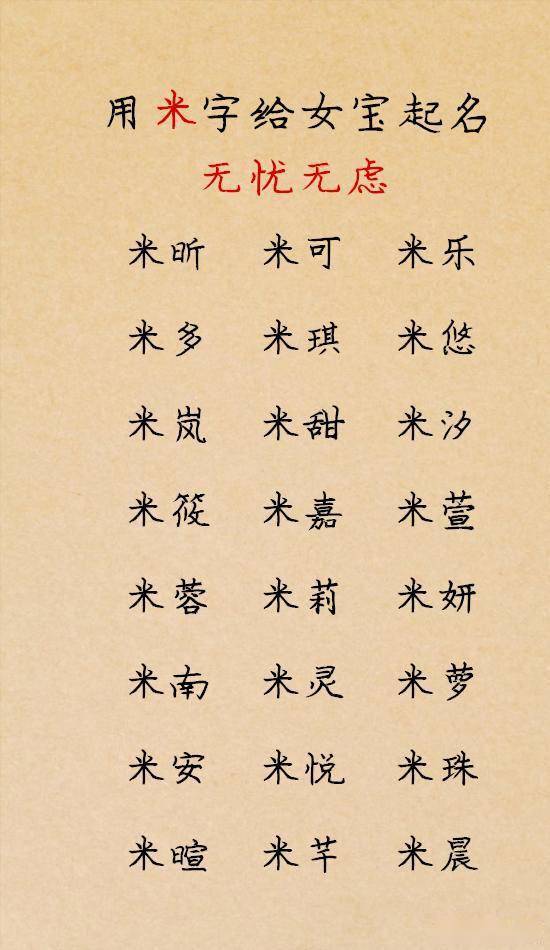 用米字给女宝起名
无忧无虑
米昕 米可 米乐
米多 米琪 米悠
米岚 米甜 米汐
米筱 米嘉 米萱
米蓉 米莉 米妍
米南 米灵 米萝
米安 米悦 米珠
米暄 米芊 米晨